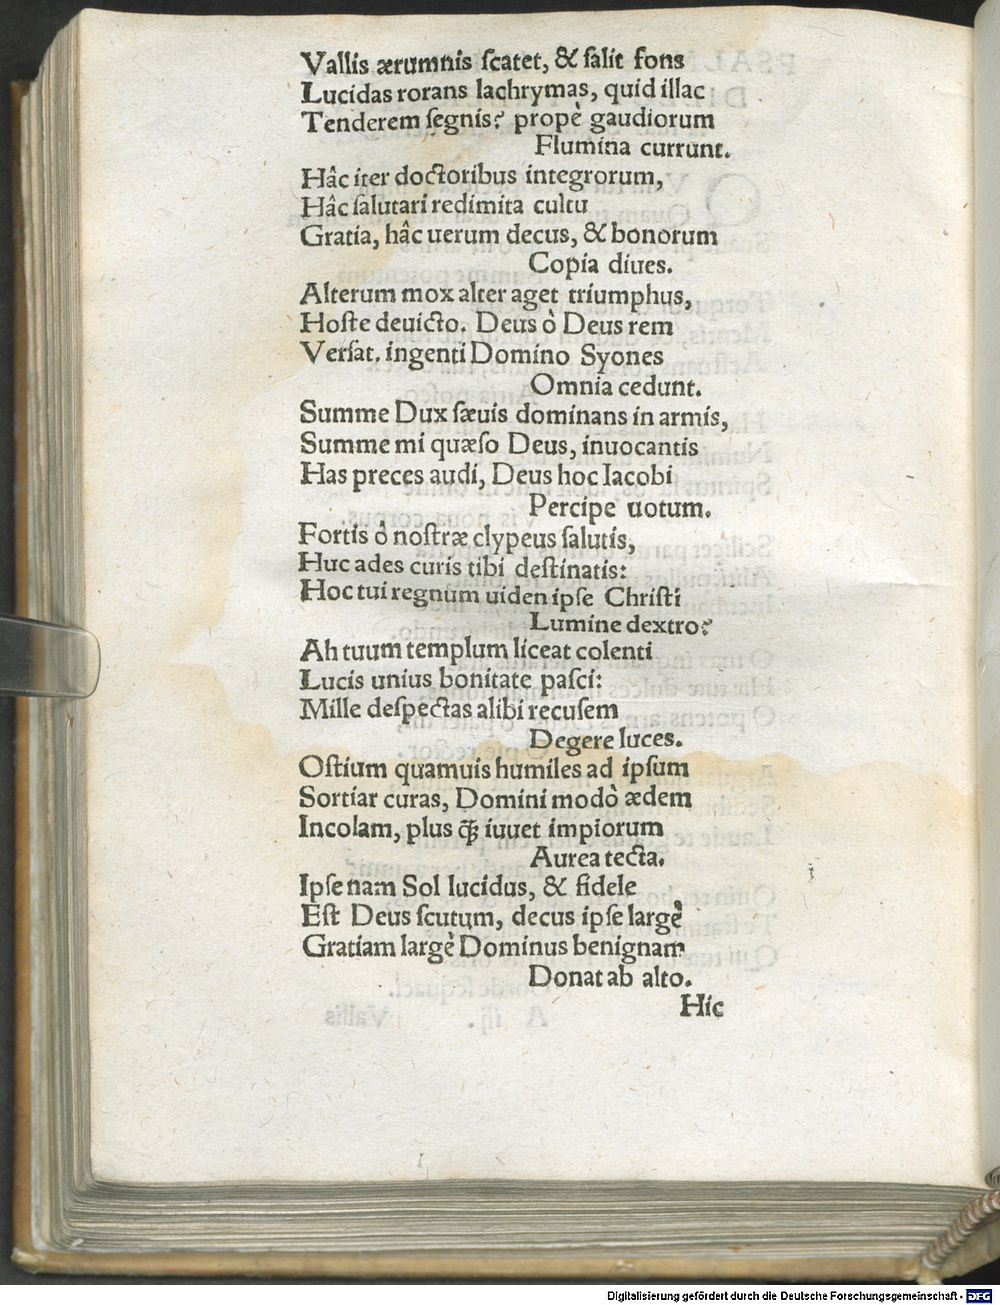 Vallis ærumnis scatet, & salit fons
Lucidas rorans lachrymas, quid illac
Tenderem segnis? propè gaudiorum
Flumina currunt.
Hâc iter doctoribus integrorum,
Hâc salutari redimita cultu
Gratia, hâc uerum decus, & bonorum
Copia diues.
Alterum mox alter aget triumphus,
Hoste deuicto. Deus ò Deus rem
Versat, ingenti Domino Syones
Omnia cedunt.
Summe Dux sæuis dominans in armis,
Summe mi quæso Deus, inuocantis
Has preces audi, Deus hoc Iacobi
Percipe uotum.
Fortis ò nostræ clypeus salutis,
Huc ades curis tibi destinatis:
Hoc tui regnum uiden ipse Christi
Lumine dextro?
Ah tuum templum liceat colenti
Lucis unius bonitate pasci:
Mille despectas alibi recusem
Degere luces.
Ostium quamuis humiles ad ipsum
Sortiar curas, Domini modò ædem
Incolam, plus q̃ȝ iuuet impiorum
Aurea tecta.
Ipse nam Sol lucidus, & fidele
Est Deus scutum, decus ipse largè
Gratiam largè Dominus benignam
Donat ab alto.
Hic
Digitalisierung gefördert durch die Deutsche Forschungsgemeinschaft - DFG